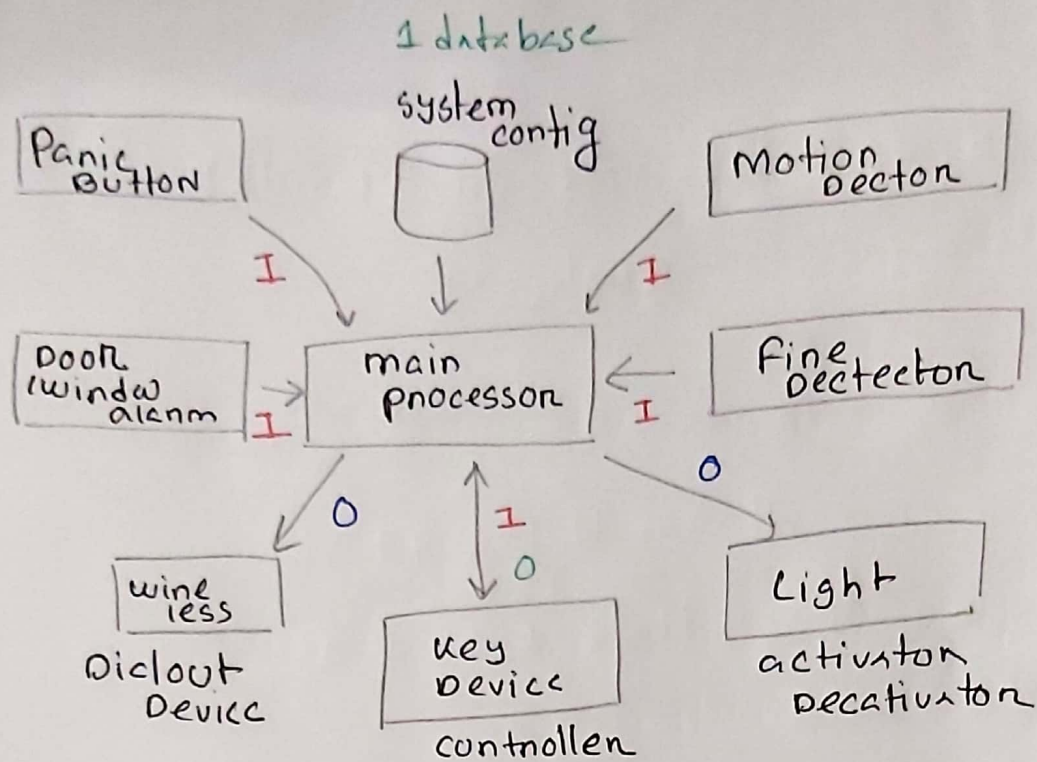 1 database
system
config
Panic
BUTTON
Motion
Dector
I
I
Door
/window
alarm
main
processor
Fine
Dectector
I
I
O
I
O
O
wire
less
Diclout
Device
Key
Device
controller
Light
activator
Decativator